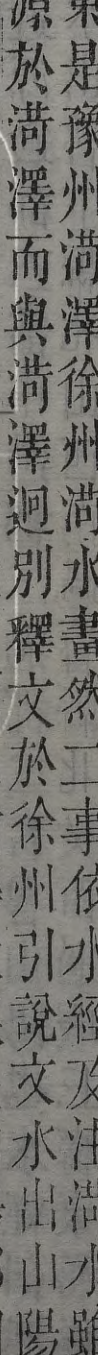 是豫州菏澤徐州菏水畫然二事依水經及注菏水雖
源於菏澤而與菏澤迥別釋文於徐州引說文水出山陽